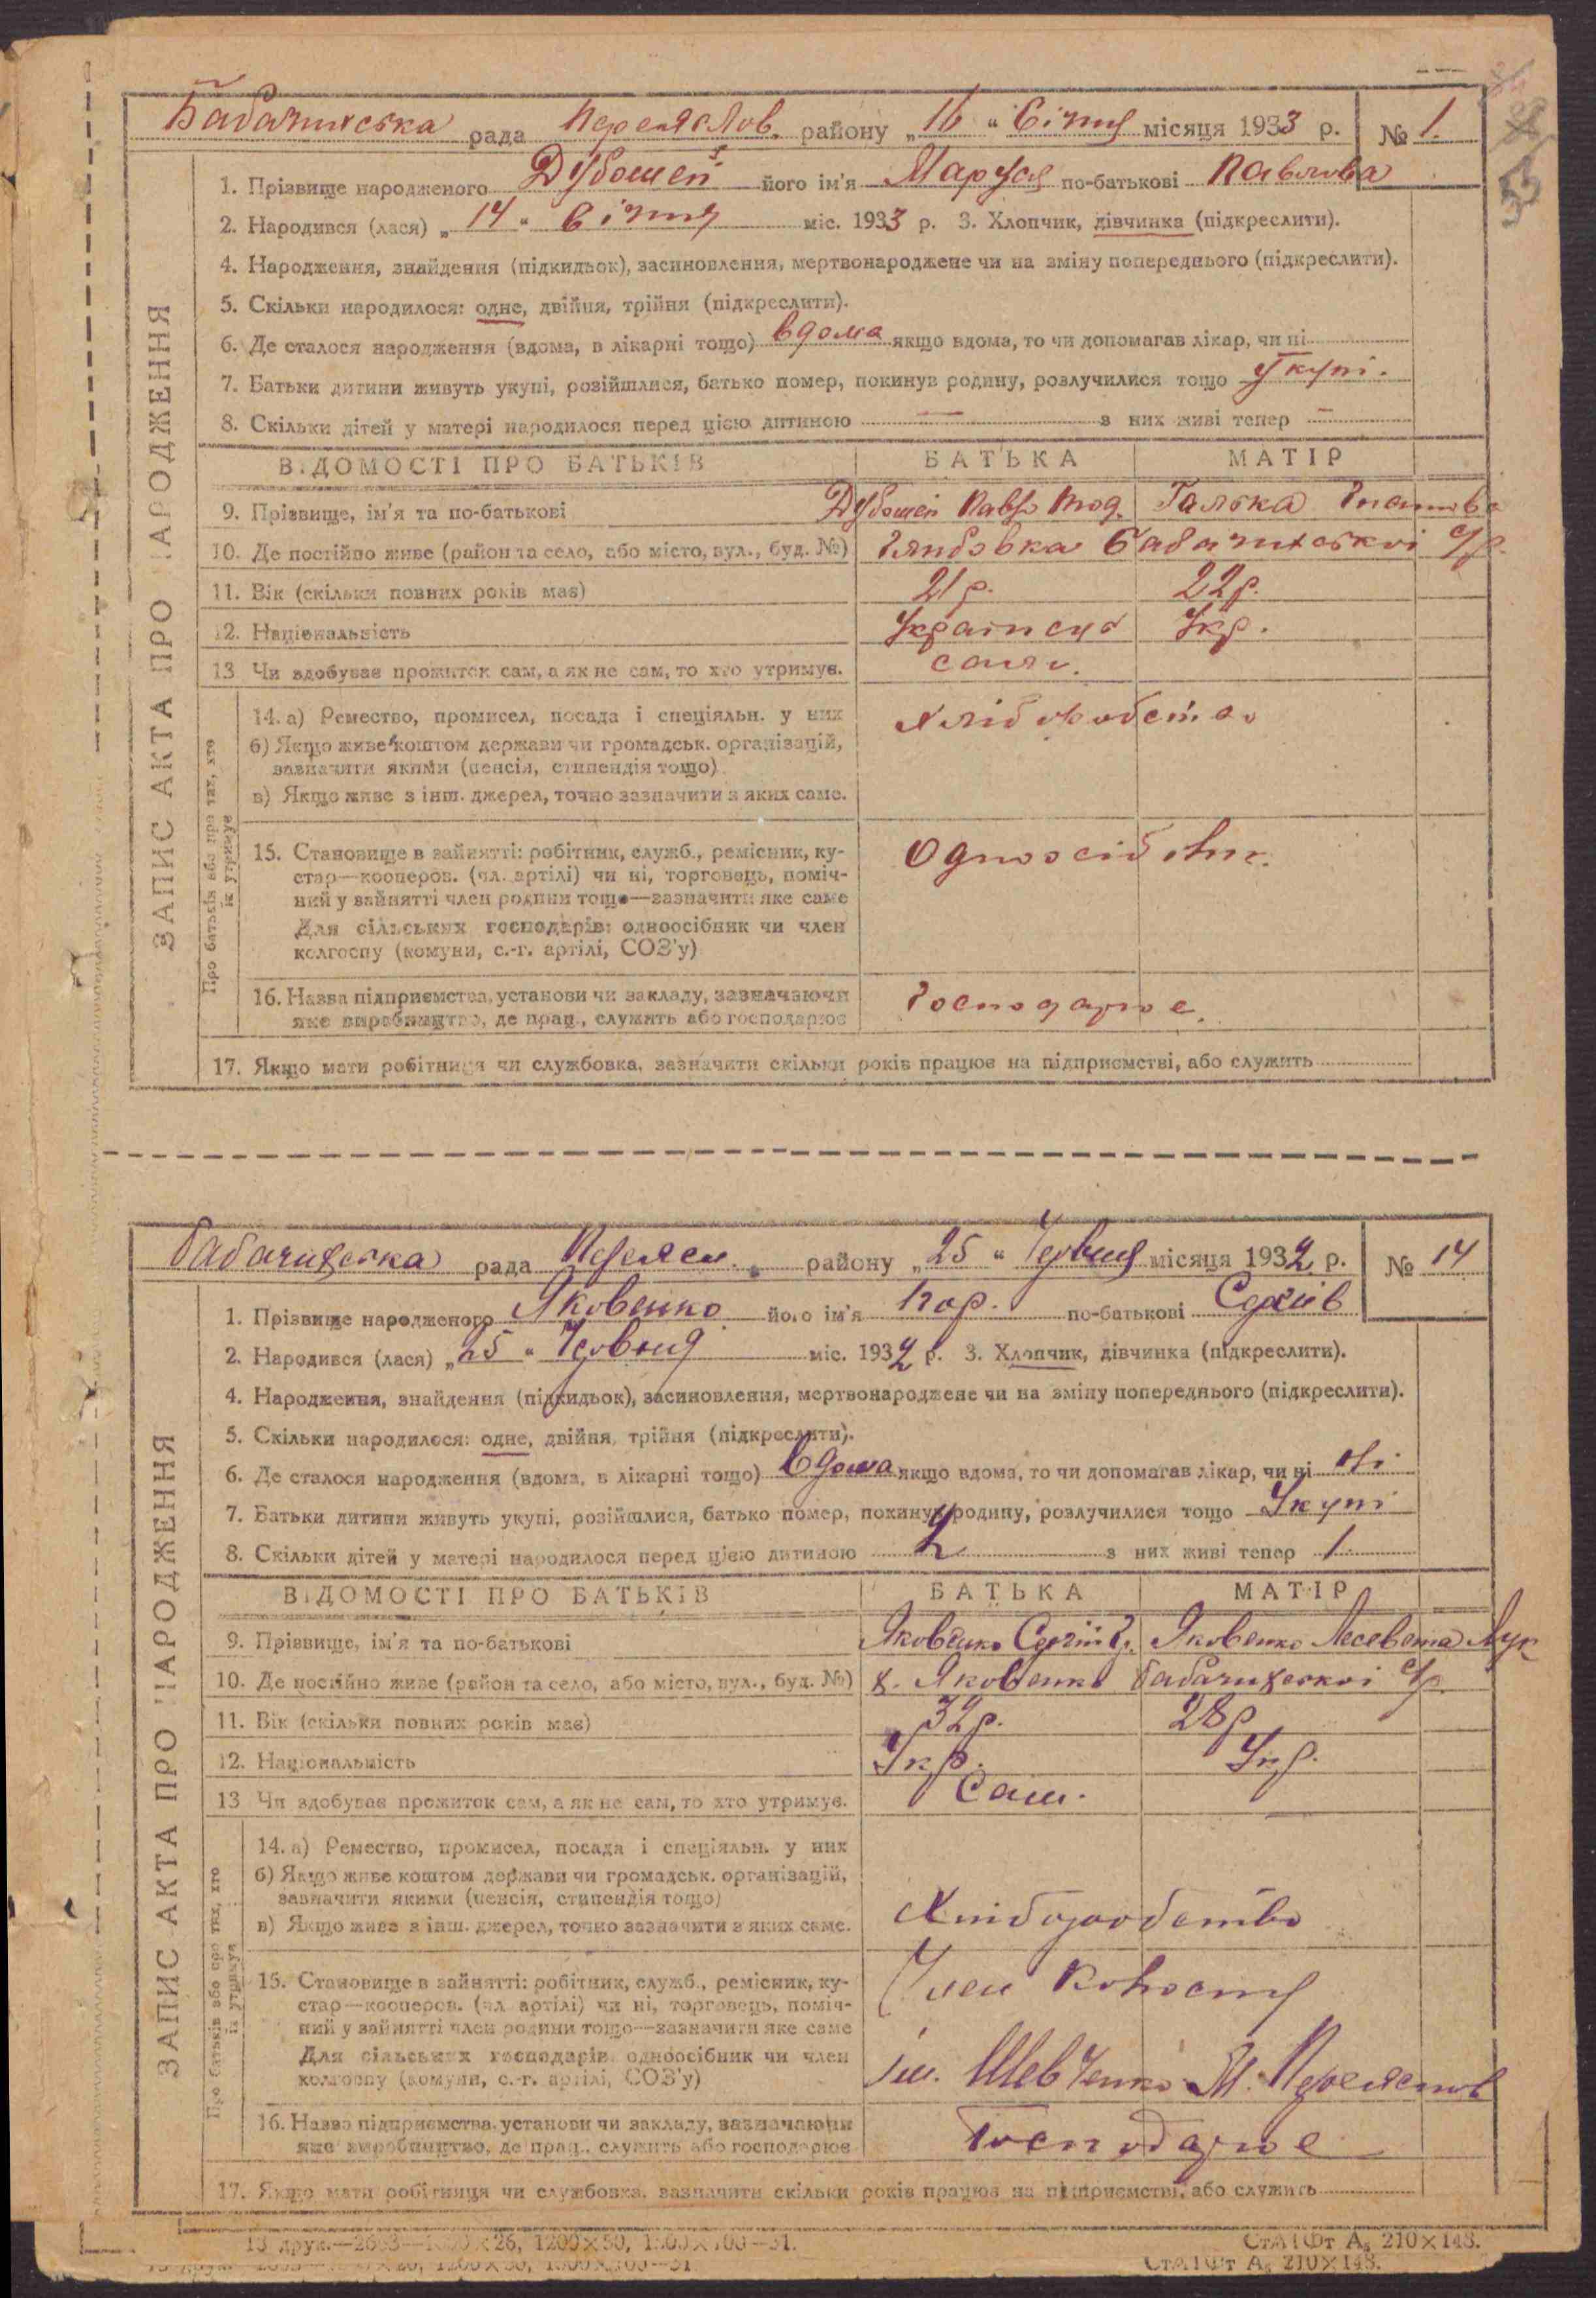 Бабачихська рада Переяслов. району „16“ Січня місяця 1933 р. № 1.
1. Прізвище народженого Дубошей його ім'я Маруся по-батькові Павлова
2. Народився (лася) „14“ Січня міс. 1933 р. 3. Хлопчик, дівчинка (підкреслити).
4. Народження, знайдення (підкидьок), засиновлення, мертвонароджене чи на зміну попереднього (підкреслити).
5. Скільки народилося: одне, двійня, трійня (підкреслити).
6. Де сталося народження (вдома, в лікарні тощо) вдома якщо вдома, то чи допомагав лікар, чи ні
7. Батьки дитини живуть укупі, розійшлися, батько помер, покинув родину, розлучилися тощо Укупі.
8. Скільки дітей у матері народилося перед цією дитиною — з них живі тепер —
ЗАПИС АКТА ПРО НАРОДЖЕННЯ
ВІДОМОСТІ ПРО БАТЬКІВ БАТЬКА МАТІР
9. Прізвище, ім'я та по-батькові Дубошей Павло Галька
10. Де постійно живе (район та село, або місто, вул., буд. №) Бабачихської с/р.
11. Вік (скільки повних років має) 21 р. 22 р.
12. Національність Українець Укр.
13 Чи здобуває прожиток сам, а як не сам, то хто утримує.
Про батьків або про тих, хто їх утримує
14. а) Ремество, промисел, посада і спеціяльн. у них Хліборобство
б) Якщо живе коштом держави чи громадськ. організацій,
зазначити якими (пенсія, стипендія тощо)
в) Якщо живе з інш. джерел, точно зазначити з яких саме.
15. Становище в зайнятті: робітник, служб., ремісник, ку- Одноосібник.
стар—кооперов. (чл. артілі) чи ні, торговець, поміч-
ний у зайнятті член родини тощо—зазначити яке саме
Для сільських господарів: одноосібник чи член
колгоспу (комуни, с.-г. артілі, СОЗ'у)
16. Назва підприємства, установи чи закладу, зазначаючи Господарює.
яке виробництво, де прац., служить або господарює
17. Якщо мати робітниця чи службовка, зазначити скільки років працює на підприємстві, або служить
Бабачихська рада Переясл. району „25“ Червня місяця 1932 р. № 14
1. Прізвище народженого Яковенко його ім'я по-батькові Сергіїв
2. Народився (лася) „25“ Червня міс. 1932 р. 3. Хлопчик, дівчинка (підкреслити).
4. Народження, знайдення (підкидьок), засиновлення, мертвонароджене чи на зміну попереднього (підкреслити).
5. Скільки народилося: одне, двійня, трійня (підкреслити).
6. Де сталося народження (вдома, в лікарні тощо) Вдома якщо вдома, то чи допомагав лікар, чи ні ні
7. Батьки дитини живуть укупі, розійшлися, батько помер, покинув родину, розлучилися тощо Укупі
8. Скільки дітей у матері народилося перед цією дитиною 2 з них живі тепер 1
ЗАПИС АКТА ПРО НАРОДЖЕННЯ
ВІДОМОСТІ ПРО БАТЬКІВ БАТЬКА МАТІР
9. Прізвище, ім'я та по-батькові Яковенко Сергій Яковенко Лесевета Лук
10. Де постійно живе (район та село, або місто, вул., буд. №) х. Яковенки Бабачихської с/р.
11. Вік (скільки повних років має) 32 р. 28 р
12. Національність Укр. Укр.
13 Чи здобуває прожиток сам, а як не сам, то хто утримує. Сам.
Про батьків або про тих, хто їх утримує
14. а) Ремество, промисел, посада і спеціяльн. у них
б) Якщо живе коштом держави чи громадськ. організацій,
зазначити якими (пенсія, стипендія тощо)
в) Якщо живе з інш. джерел, точно зазначити з яких саме. Хліборобство
15. Становище в зайнятті: робітник, служб., ремісник, ку- Член колгоспу
стар—кооперов. (чл. артілі) чи ні, торговець, поміч-
ний у зайнятті член родини тощо—зазначити яке саме
Для сільських господарів: одноосібник чи член ім. Шевченка м. Переяслов
колгоспу (комуни, с.-г. артілі, СОЗ'у)
16. Назва підприємства, установи чи закладу, зазначаючи Господарює
яке виробництво, де прац., служить або господарює
17. Якщо мати робітниця чи службовка, зазначити скільки років працює на підприємстві, або служить
13 друк.—2653— ×26, 1200×50, 1500×100—31. СтАтФт А₅ 210×148.
СтАтФт А₅ 210×148.